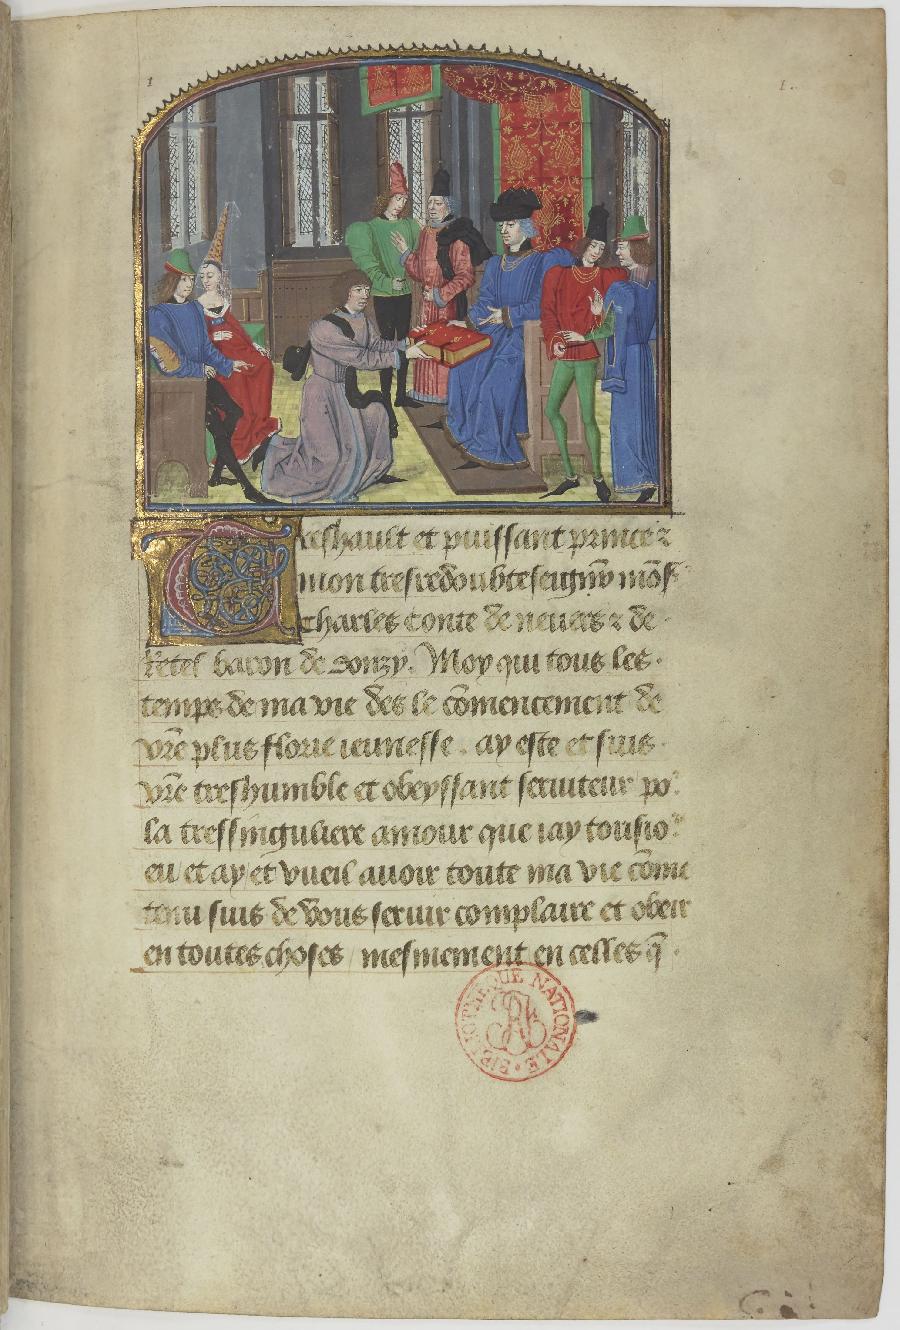 1
1.
Treshault et puissant prince ⁊
mon tresredoubte seigñr mōs
Charles Conte de nevers ⁊ de
Retel baron de donzy. Moy qui tous les
temps de ma vie des le cōmencement de
vr̃e plus florie ieunesse. ay este et suis
vr̃e treshumble et obeyssant seruiteur po᷑
la tressinguliere amour que iay tousio᷑s
eu et ay et vueil auoir toute ma vie cōme
tenu suis de vous seruir complaire et obeir
en toutes choses / mesmement en celles q̄
BIBLIOTHEQUE NATIONALE